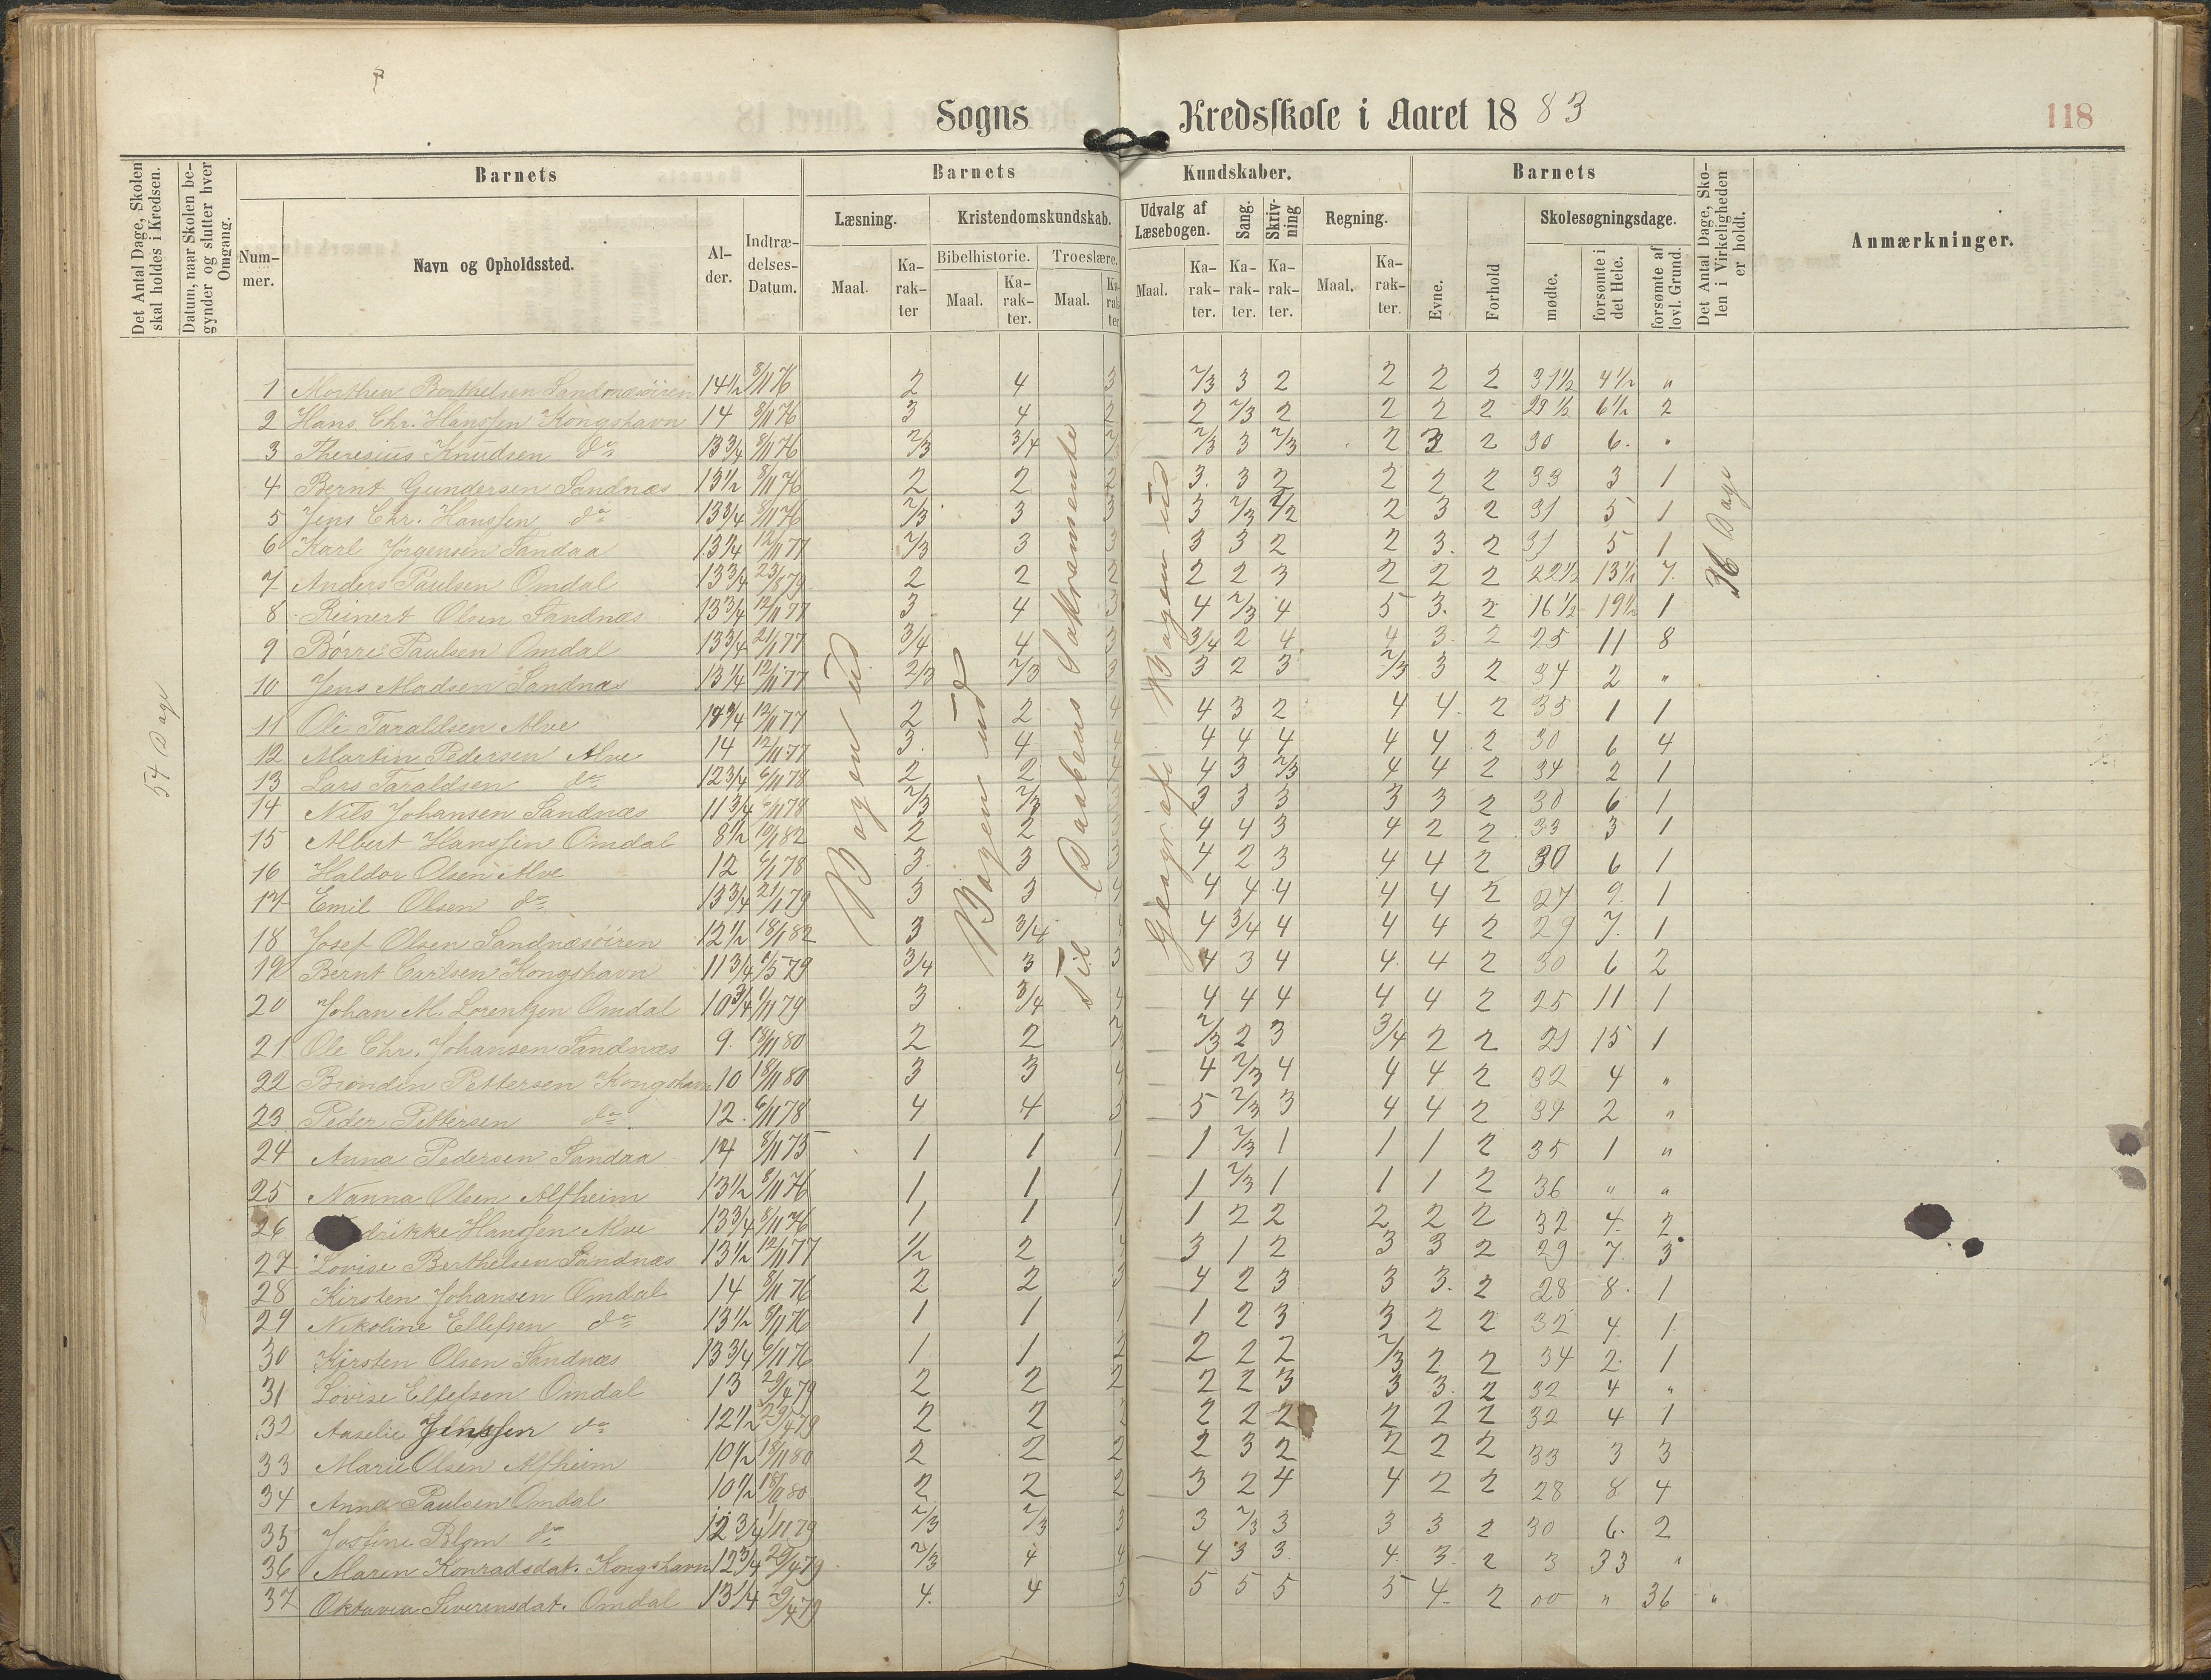 Sogns Kredsskole i Aaret 1883 118
Det Antal Dage, Skolen skal holdes i Kredsen.
Datum, naar Skolen begynder og slutter hver Omgang.
Barnets
Nummer.
Navn og Opholdssted.
Alder.
Indtrædelses-Datum.
Barnets Kundskaber.
Læsning.
Maal.
Karakter
Kristendomskundskab.
Bibelhistorie.
Maal.
Karakter.
Troeslære.
Maal.
Karakter
Udvalg af Læsebogen.
Maal.
Karakter.
Sang.
Karakter.
Skrivning
Karakter.
Regning.
Maal.
Karakter.
Barnets
Evne.
Forhold
Skolesøgningsdage.
mødte.
forsømte i det Hele.
forsømte af lovl. Grund.
Det Antal Dage, Skolen i Virkeligheden er holdt.
Anmærkninger.
54 Dage
Bogen ud
Bogen ud
Til Daabens Sakramente
Geografi Bogen ud
36 Dage
1 Morthen Berthelsen Sandnæsøiren 14½ 8/11 76 2 4 3 2/3 3 2 2 2 2 31½ 4½ "
2 Hans Chr. Hanssen Kongshavn 14 8/11 76 3 4 2 2 2/3 2 2 2 2 29½ 6½ 2
3 Theresius Knudsen do 13¾ 8/11 76 2/3 3/4 2/3 2/3 3 2/3 2 3 2 30 6. "
4 Bernt Gundersen Sandnæs 13½ 8/11 76 2 2 2 3. 3 2 2 2 2 33 3 1
5 Jens Chr. Hanssen do 13¾ 8/11 76 2/3 3 3 3 2/3 1/2 2 3 2 31 5 1
6 Karl Jørgensen Sandaa 13¼ 12/11 77 2/3 3 3 3 3 2 2 3. 2 31 5 1
7 Anders Paulsen Omdal 13¾ 23/8 79 2 2 2 2 2 3 2 2 2 22½ 13½ 7.
8 Reinert Olsen Sandnæs 13¾ 12/11 77 3 4 3 4 2/3 4 5 3. 2 16½ 19½ 1
9 Børre Paulsen Omdal 13¾ 21/1 77 3/4 4 3 3/4 2 4 4 3 2 25 11 8
10 Jens Madsen Sandnæs 13¼ 12/11 77 2/3 2/3 3 3 2 3 2/3 3 2 34 2 "
11 Ole Taraldsen Alve 13¾ 12/11 77 2 2 4 4 3 2 4 4 2 35 1 1
12 Martin Pedersen Alve 14 12/11 77 3. 4 4 4 4 4 4 4 2 30 6 4
13 Lars Taraldsen do 12¾ 6/11 78 2 2 4 4 3 2/3 4 4 2 34 2 1
14 Nils Johansen Sandnæs 11¾ 6/11 78 2/3 2/3 3 3 3 3 3 2 30 6 1
15 Albert Hanssen Omdal 8½ 10/1 82 2 2 4 4 3 4 2 2 33 3 1
16 Haldor Olsen Alve 12 6/1 78 3. 3 3 4 2 3 4 4 2 30 6 1
17 Emil Olsen do 13¾ 21/1 79 3 3 4 4 4 4 4 4 2 27 9. 1
18 Josef Olsen Sandnæsøiren 12½ 18/1 82 3 3/4 4 4 3/4 4 4 4 2 29 7. 1
19 Bernt Carlsen Kongshavn 11¾ 1/5 79 3/4 3 3 4 3 4 4 4 2 30 6 2
20 Johan M. Lorentzen Omdal 10¾ 1/11 79 3 3/4 4 4 4 4 4 4 2 25 11 1
21 Ole Chr. Johansen Sandnæs 9. 18/11 80 2 2 2/3 2/3 2 3 3/4 2 2 21 15 1
22 Brondin Pettersen Kongshavn 10 18/11 80 3 3 4 4 2/3 4 4 4 2 32 4 "
23 Peder Pettersen do 12. 6/11 78 4 4 5 5 2/3 3 4 4 2 34 2 "
24 Anna Pedersen Sandaa 14 8/11 75 1 1 1 1 2/3 1 1 1 2 35 1 "
25 Nanna Olsen Alfheim 13½ 8/11 76 1 1 1 1 2/3 1 1 1 2 36 " "
26 drikke Hanssen Alve 13¾ 8/11 76 1 1 1 1 2 2 2 2 2 32 4. 2
27 Lovise Berthelsen Sandnæs 13½ 12/11 77 1/2 2 3 3 1 2 3 3 2 29 7. 3
28 Kirsten Johansen Omdal 14 8/11 76 2 2 3 4 2 3 3 3. 2 28 8. 1
29 Nikoline Ellefsen do 13½ 8/11 76 1 1 1 1 2 3 3 2 2 32 4. 1.
30 Kirsten Olsen Sandnæs 13¾ 6/11 76 1 1 2 2 2 2 2/3 2 2 34 2. 1
31 Lovise Ellefsen Omdal 13 29/4 79 2 2 2 2 2 3 3 3. 2 32 4 "
32 Aaselie Jenssen do 12½ 29/4 79 2 2 2 2 2 2 2 2 2 32 4 1
33 Marie Olsen Alfheim 10½ 18/11 80 2 2 2 2 3 2 2 2 2 33 3 3
34 Anna Paulsen Omdal 10½ 18/11 80 2 2 2 3 2 4 4 2 2 28 8 4
35 Josfine Blom do 12¾ 1/11 79 2/3 2/3 3 3 2/3 3 3 3 2 30 6. 2
36 Maren Konradsdat. Kongshavn 12¾ 29/4 79 2/3 4 4 4 3 3. 4. 3. 2 3 33 "
37 Oktavia Siverensdat. Omdal 13¼ 29/4 79 4. 4 5 5 5 5 5 4. 2 00 " 36 "